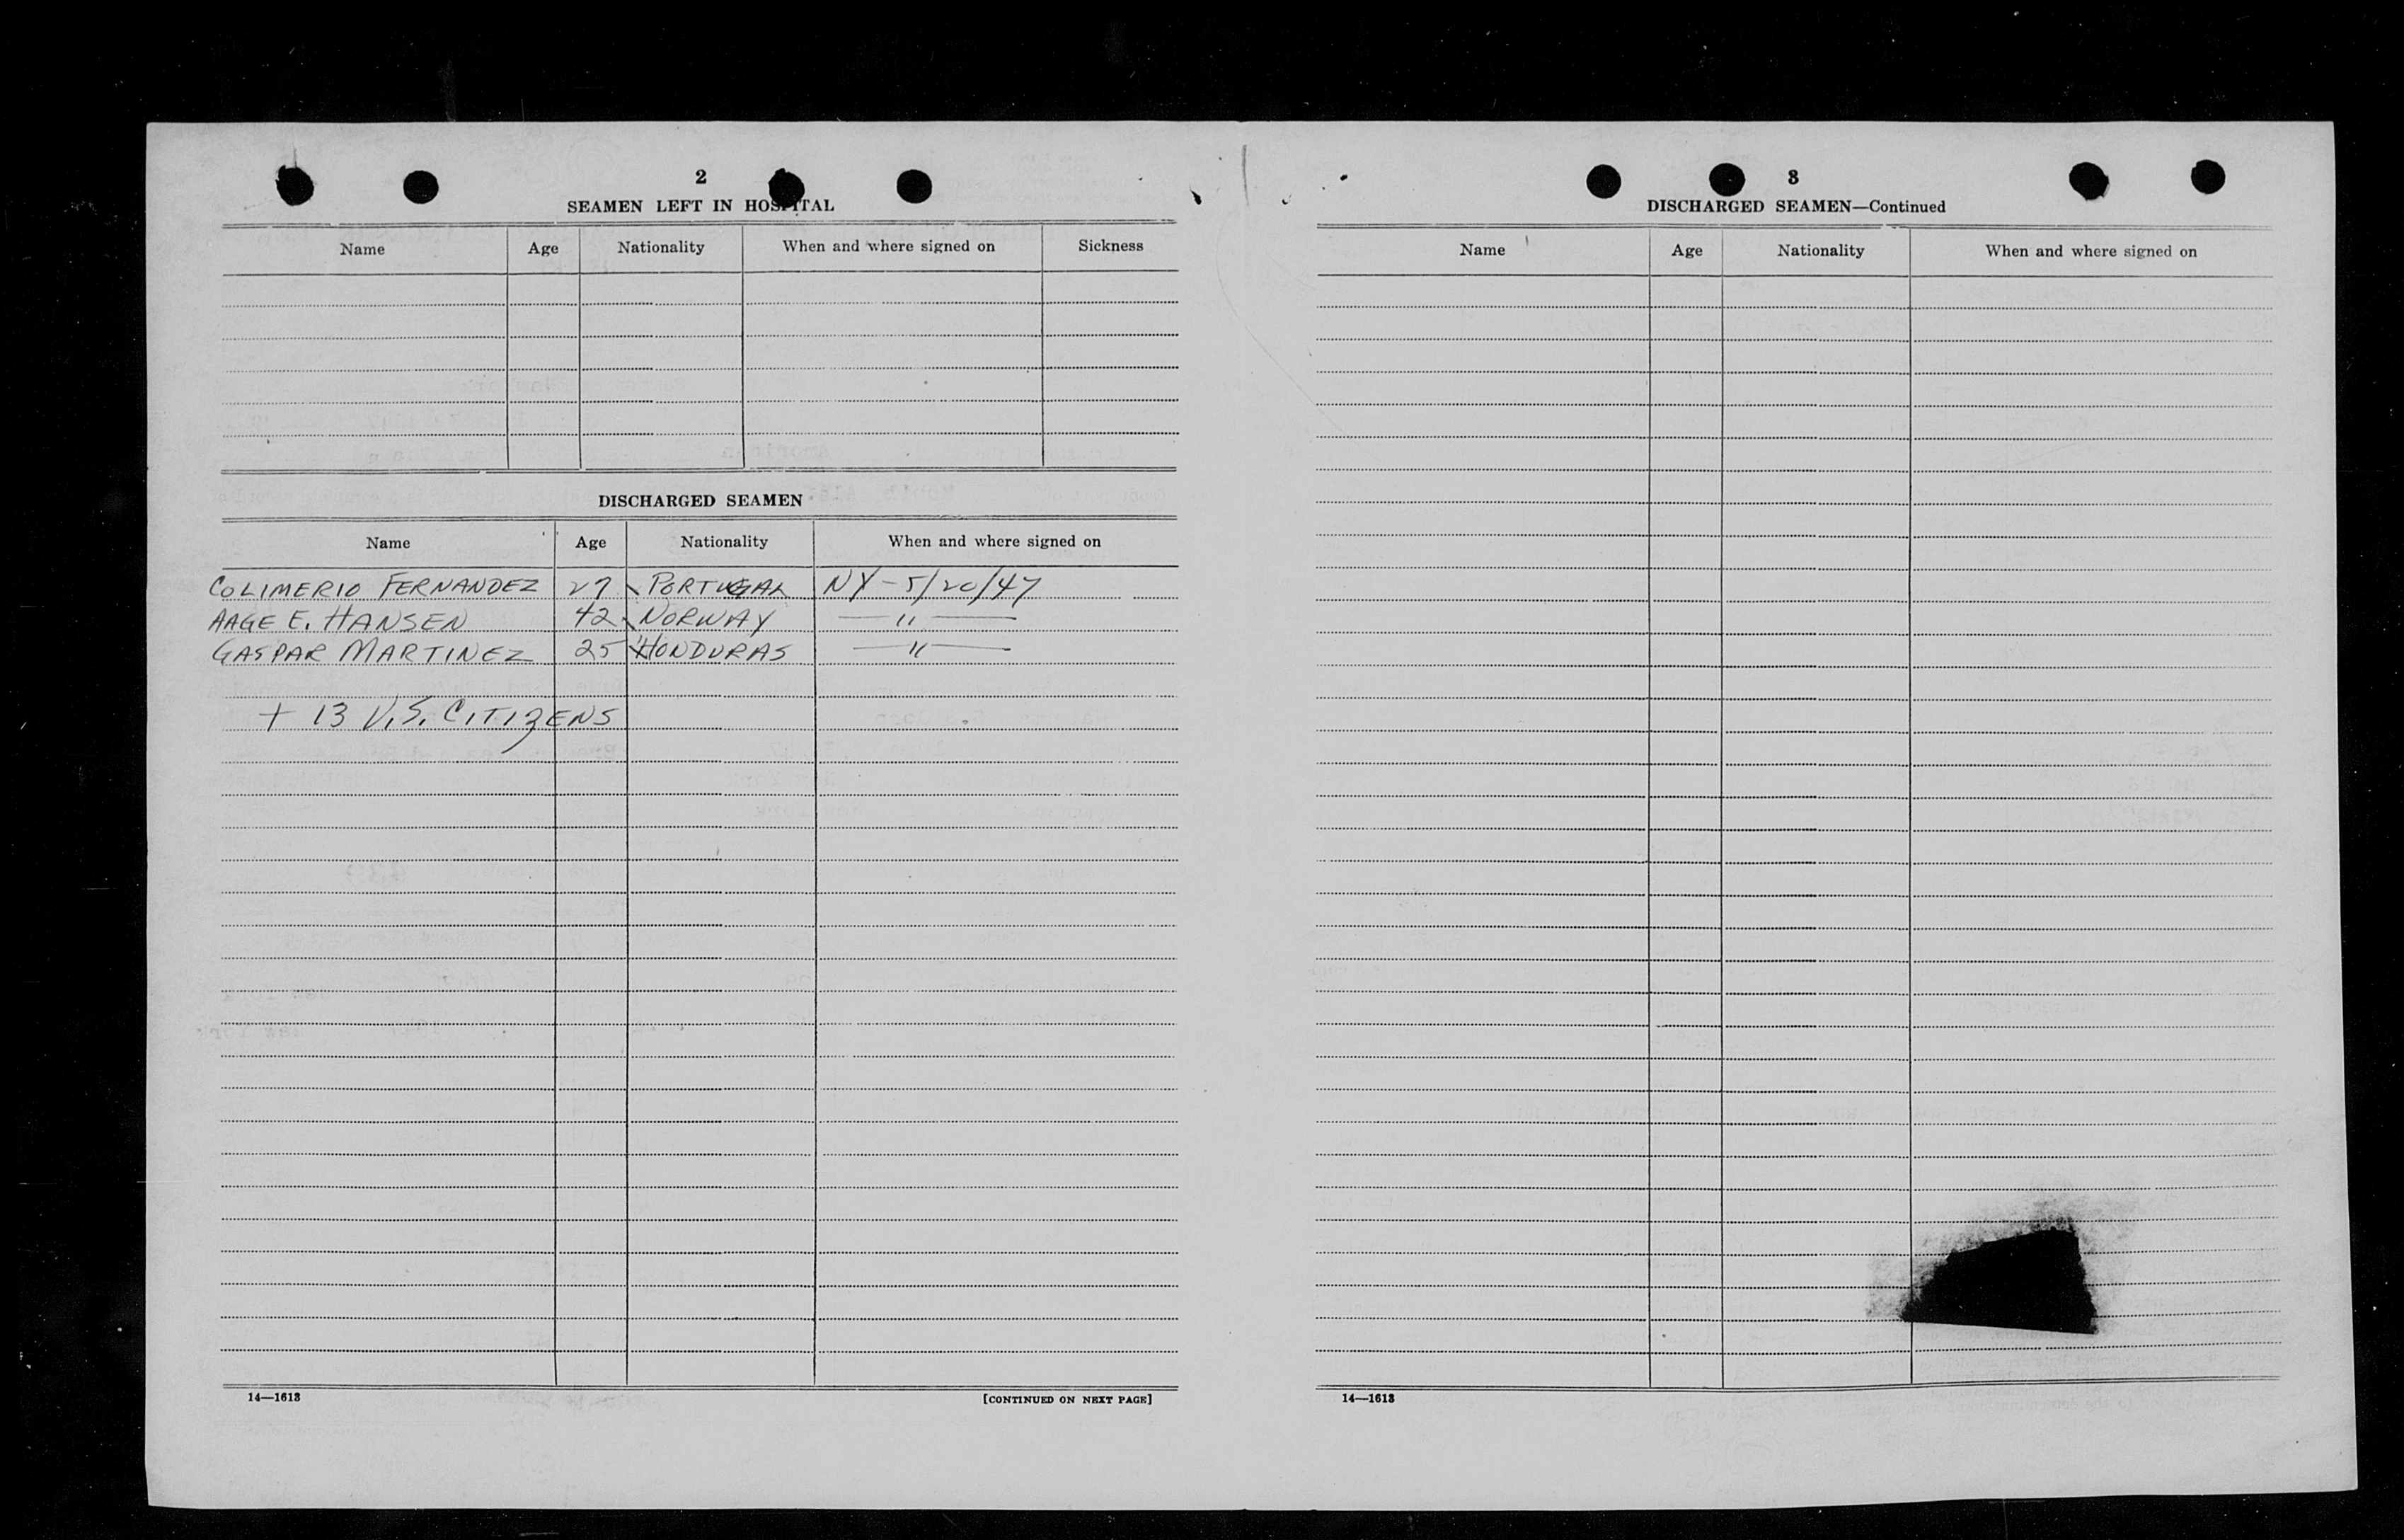 2
SEAMEN LEFT IN HOSPITAL
Name Age Nationality When and where signed on Sickness
DISCHARGED SEAMEN
Name Age Nationality When and where signed on
COLIMERIO FERNANDEZ 27 PORTUGAL NY - 5/20/47
AAGE E. HANSEN 42 NORWAY — " —
GASPAR MARTINEZ 25 HONDURAS — " —
+ 13 U.S. CITIZENS
14—1613 [CONTINUED ON NEXT PAGE]
3
DISCHARGED SEAMEN—Continued
Name Age Nationality When and where signed on
14—1613